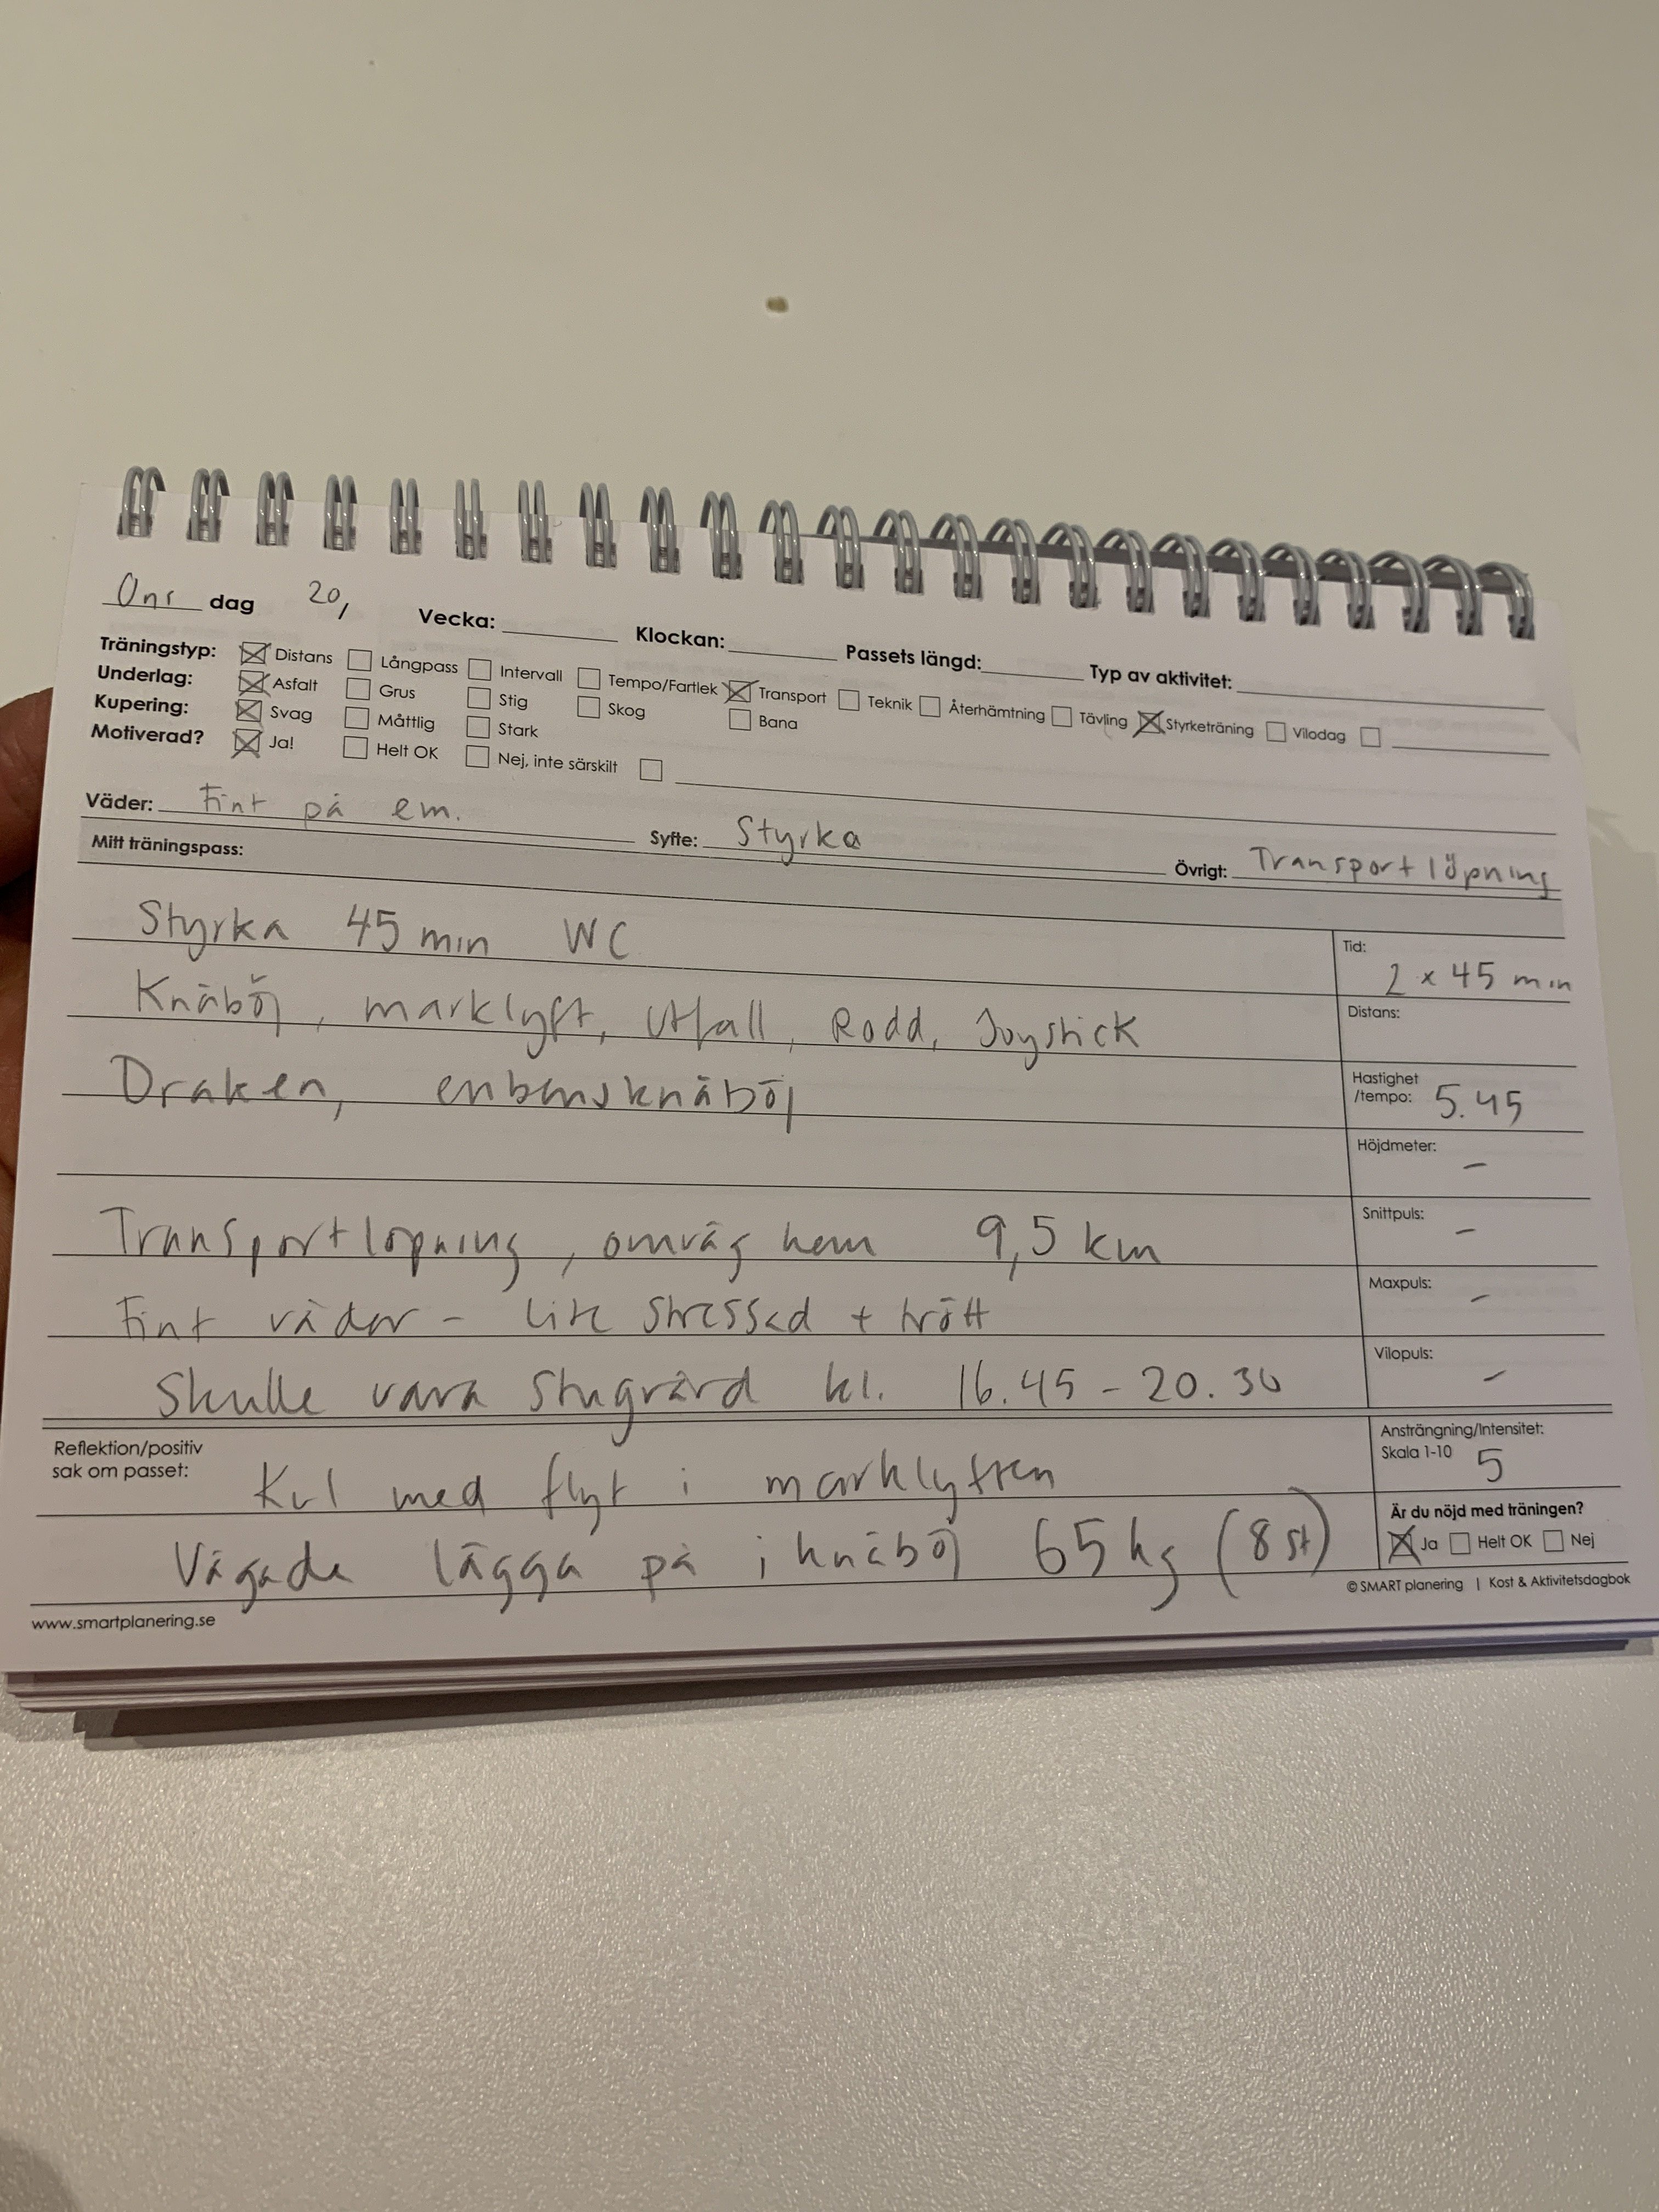 Ons dag 20, Vecka: Klockan: Passets längd: Typ av aktivitet:
Träningstyp: Distans Långpass Intervall Tempo/Fartlek Transport Teknik Återhämtning Tävling Styrketräning Vilodag
Underlag: Asfalt Grus Stig Skog Bana
Kupering: Svag Måttlig Stark
Motiverad? Ja! Helt OK Nej, inte särskilt
Väder: Fint på em. Syfte: Styrka Övrigt: Transportlöpning
Mitt träningspass:
Styrka 45 min WC
Tid: 2 x 45 min
Knäböj, marklyft, Utfall, Rodd, Joystick
Distans:
Draken, enbensknäböj
Hastighet
/tempo: 5.45
Höjdmeter: –
Transportlöpning, omväg hem 9,5 km
Snittpuls: –
Fint väder – lite stressad + trött
Maxpuls: –
Skulle vara stugvärd kl. 16.45 – 20.30
Vilopuls: –
Reflektion/positiv
sak om passet: Kul med flyt i marklyften
Ansträngning/Intensitet:
Skala 1-10 5
Vågade lägga på i knäböj 65 kg (8 st)
Är du nöjd med träningen?
Ja Helt OK Nej
www.smartplanering.se
© SMART planering | Kost & Aktivitetsdagbok